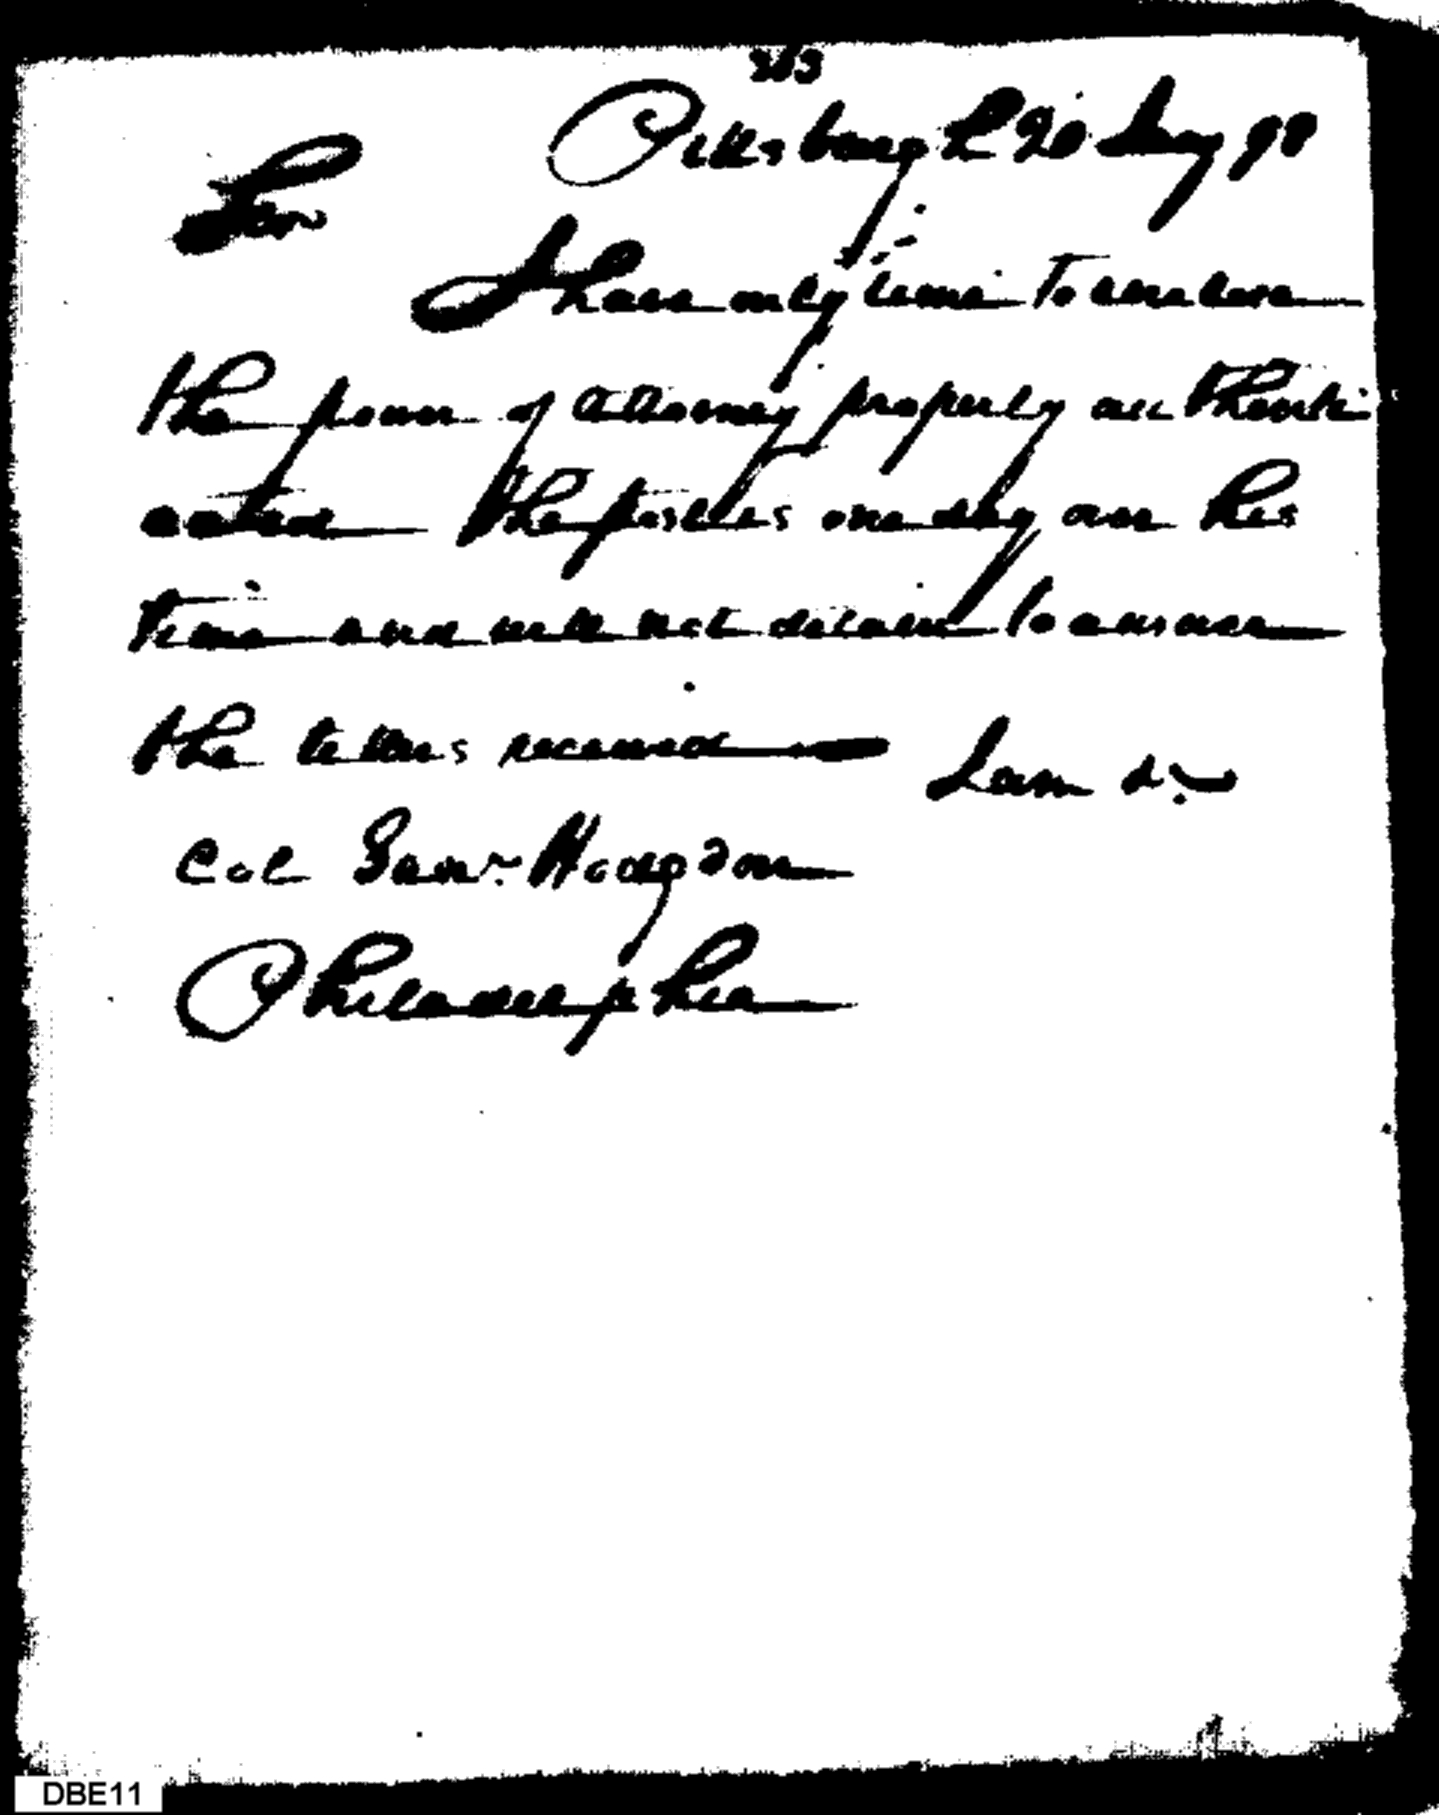 Pittsburgh 20 98
Sir
I have only time to enclose
the power of attorney properly authenti
cated The post is one day over his
time and will not detain to answer
the letters received I am &c
Col Saml. Hodgdon
Philadelphia
DBE11